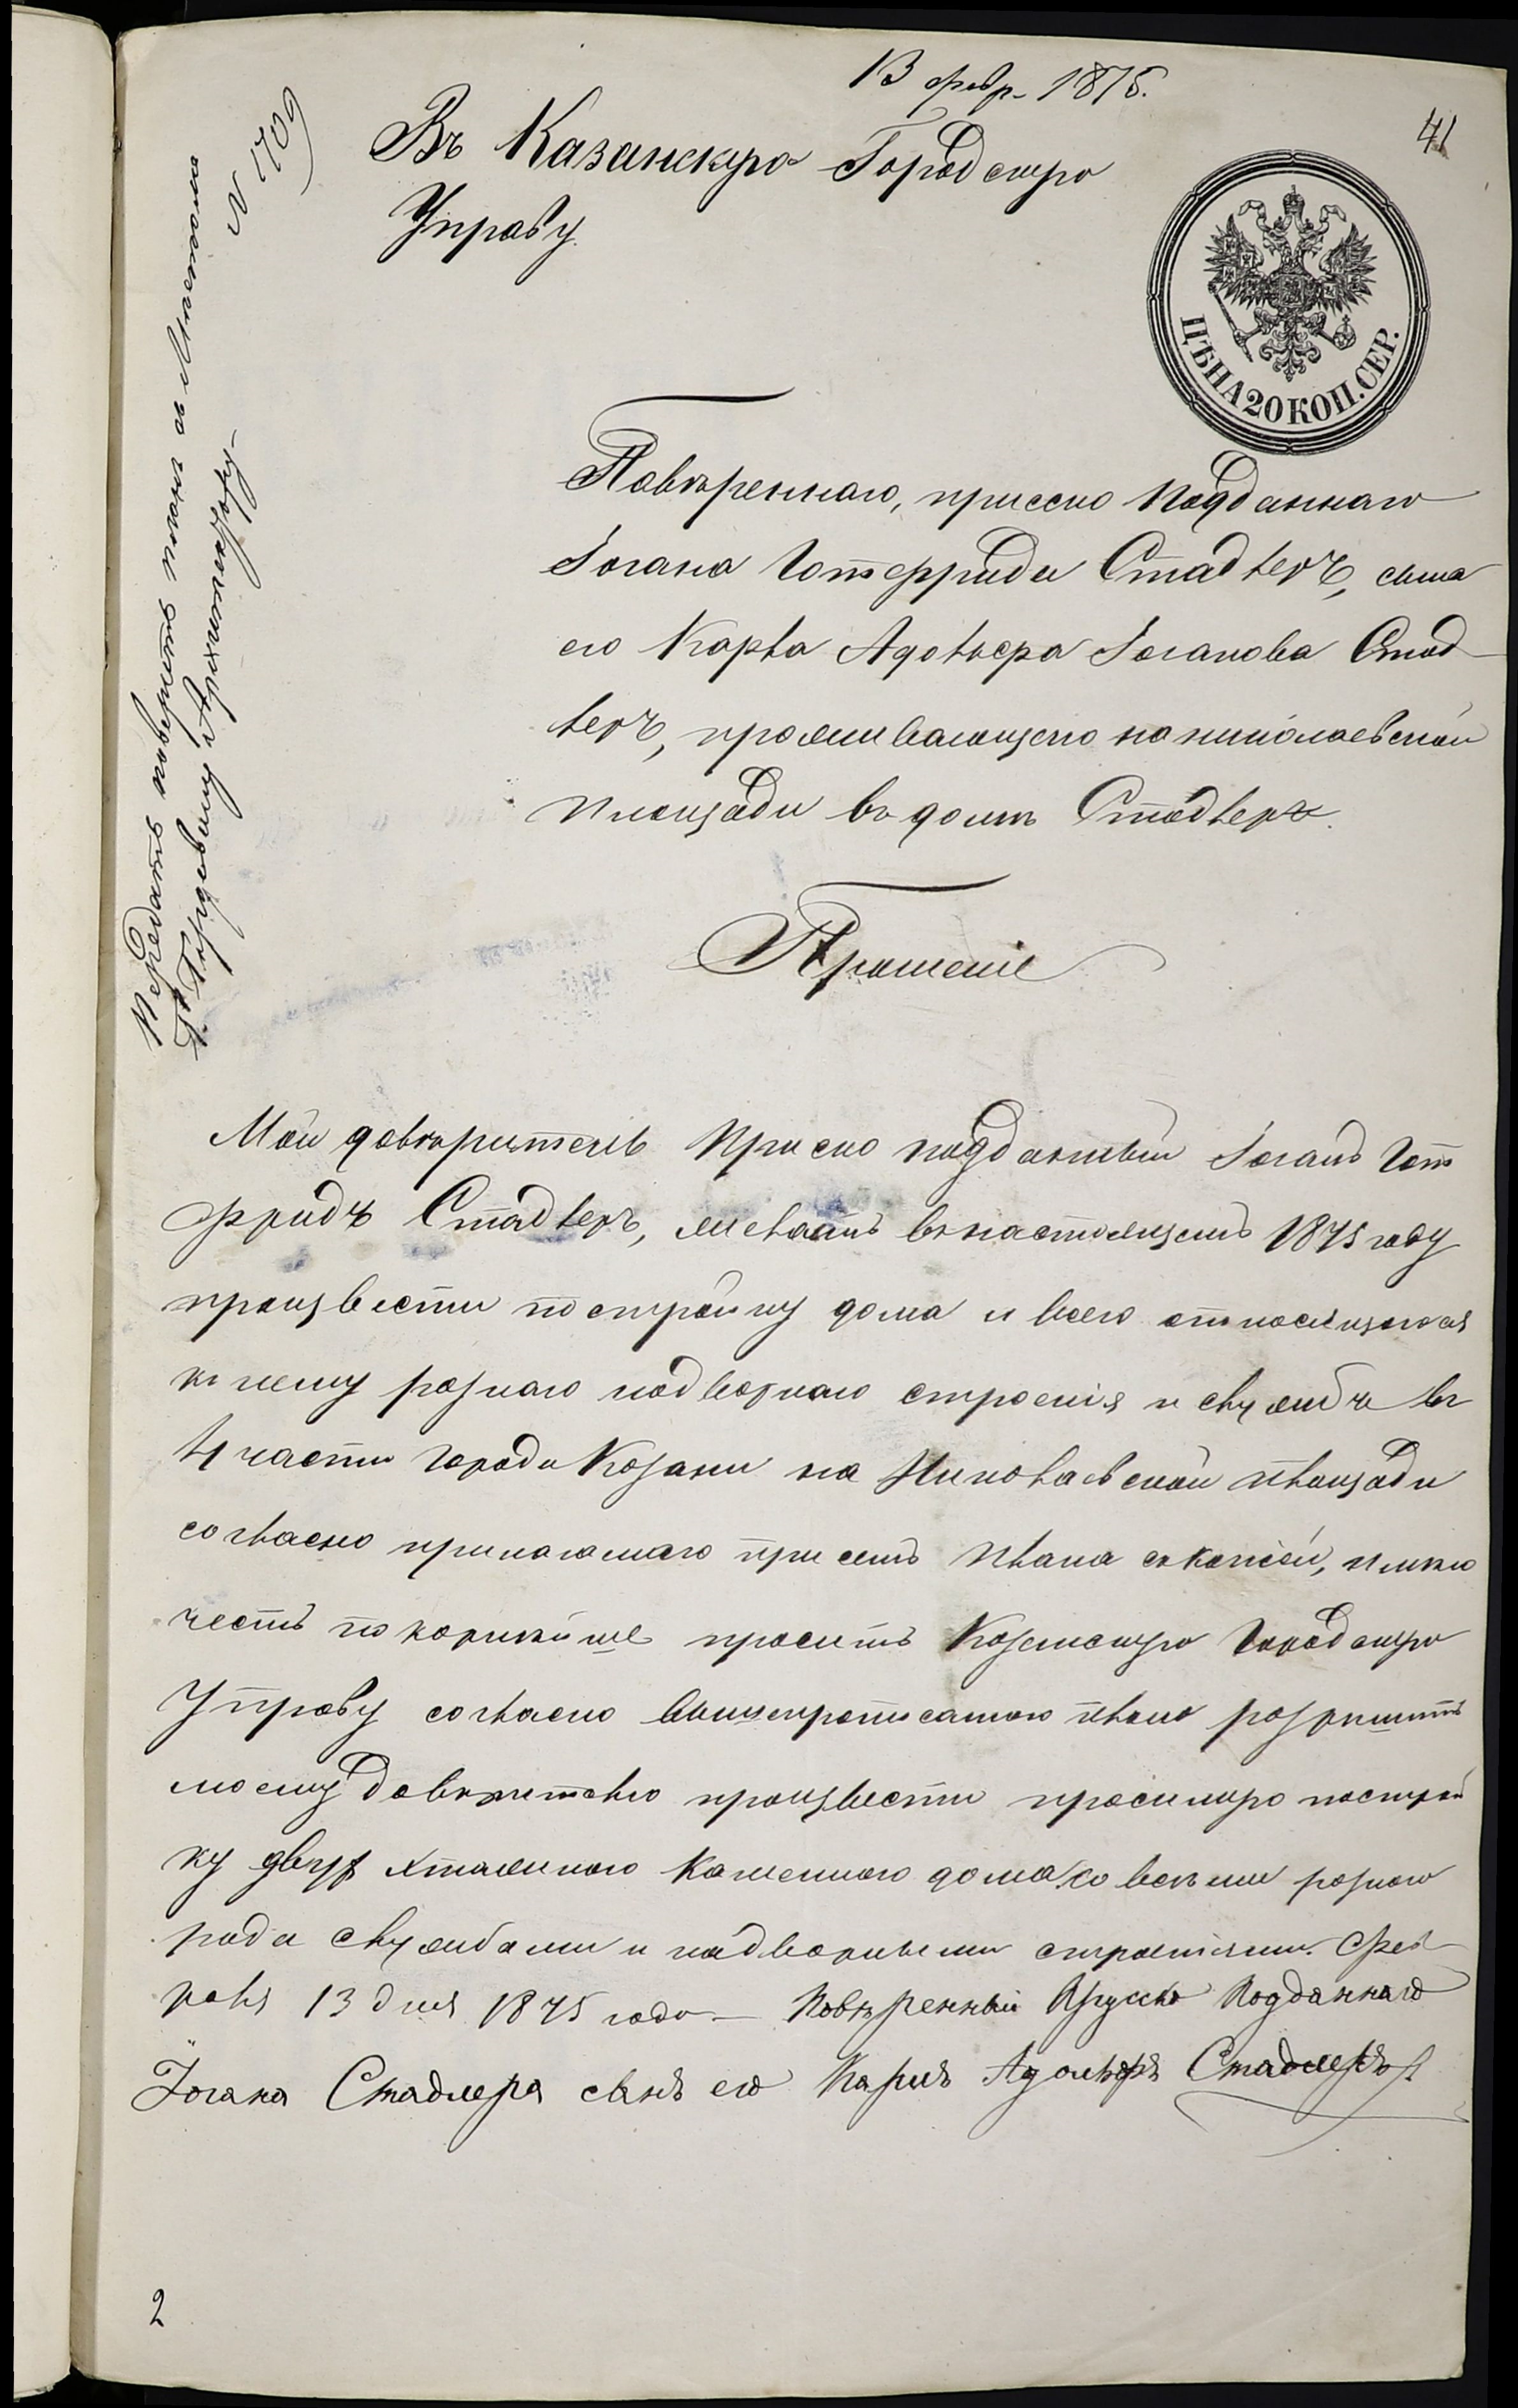 13 февр. 1875.
41
Въ Казанскую Городскую
Управу
ЦѢНА 20 КОП. СЕР.
Повѣреннаго, прусско подданнаго
Іогана Готфрида Стадлеръ, сына
его Карла Адольфа Іоганова Стад
леръ, проживающаго на николаевской
площади въ домѣ Стадлеръ.
Прошеніе
Мой довѣритель Прусско подданный Іоганъ Гот
фридъ Стадлеръ, желаетъ въ настоящемъ 1875 году
произвести постройку дома и всего относящагося
къ нему разнаго надворнаго строенія и службъ въ
4 части города Казани на Николаевской площади
согласно прилагаемаго при семъ плана съ копіей, имѣю
честь покорнѣйше просить Казанскую Городскую
Управу согласно вышепрописаннаго плана разрѣшить
моему довѣрителю произвести просимую построй
ку двухъ этажнаго каменнаго дома со всѣми разнаго
рода службами и надворными строеніями. Фев
раля 13 дня 1875 года Повѣренный Прусско Подданнаго
Іогана Стадлера сынъ его Карлъ Адольфъ Стадлеръ
2
№ 1209
Передать этотъ
Г. Городовому Архитектору